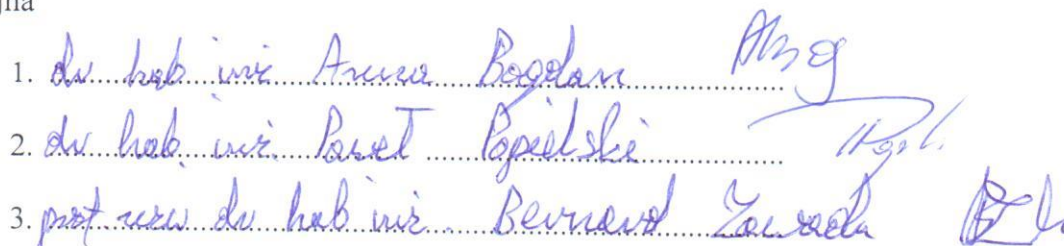 jna
1. dr hab inż Anna Bogdan
2. dr hab inż. Paweł Popielski
3. prof. ucz. dr hab inż. Bernard Zawada